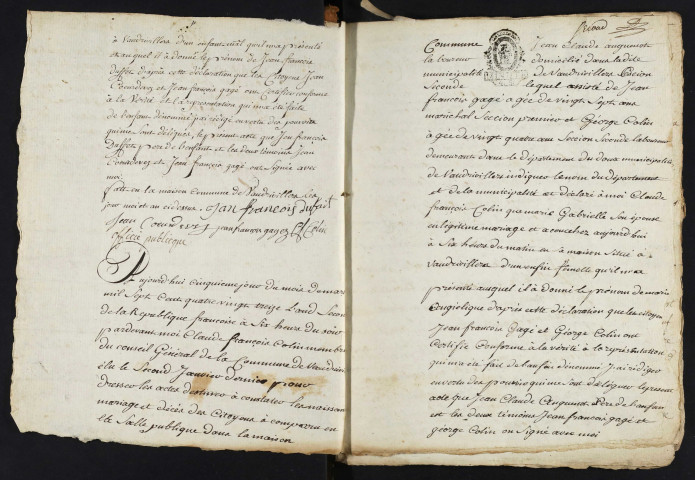 à Vaudrivillers d'un enfant mâl qu'il m'a présenté
et auquel il a donné le prénom de Jean françois
duffet d'après cette déclaration que les Citoyens Jean
Courdevey et Jean françois gagé ont certifié conforme
à la vérité et la représentation qui m'a été faite
de l'enfant dénommé j'ai rédigé en vertu des pouvoirs
qui me sont délégués, le présent acte que Jean françois
Duffet père de l'enfant et les deux témoins Jean
Courdevey et Jean françois gagé ont Signés avec
moi
fait en la maison commune de Vaudrivillers les
jour mois et an cidessus. Jan francois dufait
Jean Courdevey jean francois gagez Cf Colin
officié publicque
aujourdhui cinquieme jour du mois de mar
mil Sept Cent quatre vingt treize L'and Second
de la République francoise à Six heure du soir
pardevant moi Claude françois Colin membre
du conseil Général de la Commune de Vaudrivil
élu le Second Janvier dernier pour
dresser les actes destinés à constater les naissan
mariage et décés des Citoyens à comparu en
la Salle publique dans la maison
Commune Jean Claude
laboureur domicilié dans ladite
municipalité de Vaudrivillers Section
Seconde lequel assisté de Jean
françois gagé agée de vingt Sept ans
maréchal Section premier et George Colin
agée de vingt quatre ans Section Seconde laboureur
demeurant dans le département du doux municipalité
de Vaudrivillers indiquer le nom du département
et de la municipalité et déclaré à moi Claude
françois Colin que marie Gabrielle Son épouse
en légitime mariage et accouchez aujourdhui
à Six heures du matin en sa maison Située à
Vaudrivillers d'un enfin femelle qu'il m'a
présenté auquel il à donné le prénom de marie
Angelique d'après cette déclaration que les citoyen
Jean françois Gagé et George Colin ont
Certifié Conforme à la vérité à la représentation
qui m'a été fait de l'enfan dénommé J'ai rédiger
en vertu des pouvoirs qui me sont déléguez le présent
acte que Jean Claude père de l'enfan
et les deux témoins Jean françois gagé et
george Colin on Signé avec moi